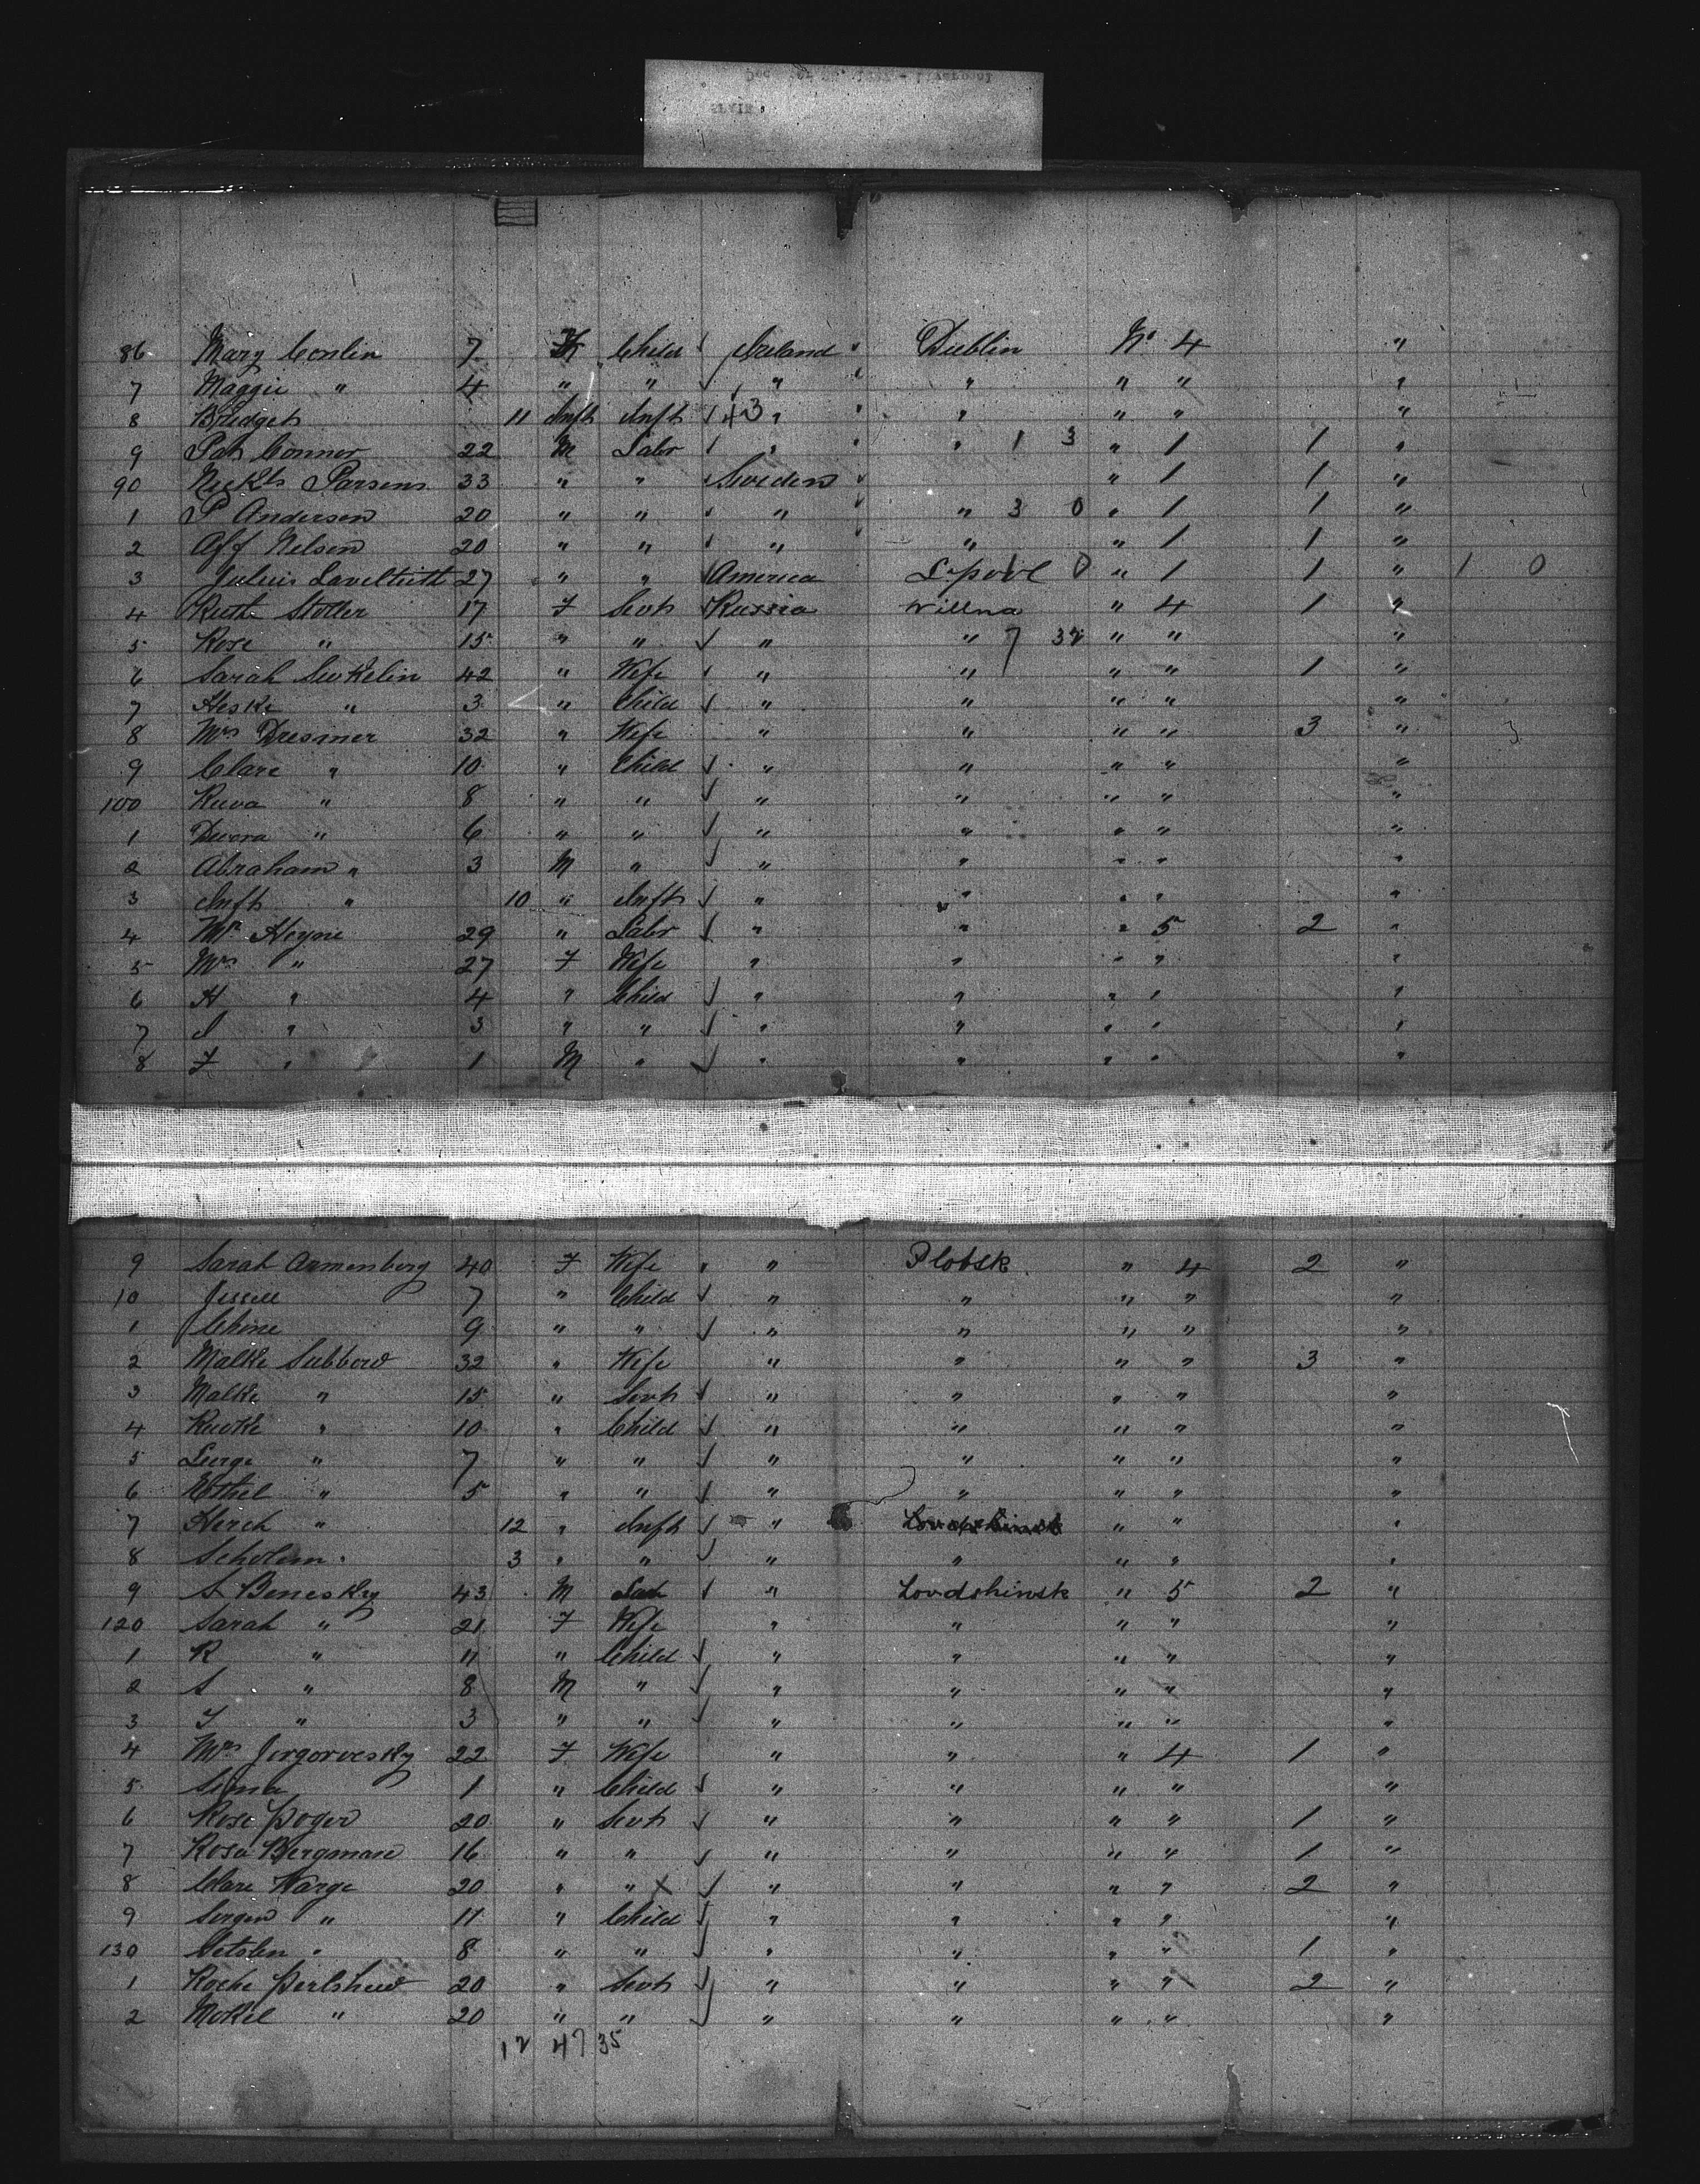 86 Mary Conlin 7 F Child Ireland Dublin No 4 "
7 Maggie " 4 " " " " " " "
8 Bridget 11 Inft Inft 43 " " " " "
9 Pat Connor 22 M Labr " " 1 3 " 1 1 "
90 Parsons 33 " " Sweden " 1 1 "
1 P Andersen 20 " " " " 3 0 " 1 1 "
2 Aff Nelsen 20 " " " " " 1 1 "
3 Julius 27 " " America L.pool 0 " 1 1 " 1 0
4 Ruth Stotter 17 F Servt Russia Willna " 4 1 "
5 Rose " 15 " " " " 7 " " "
6 Sarah 42 " Wife " " " " 1 "
7 Heske " 3 " Child " " " " "
8 Mrs Dresner 32 " Wife " " " " 3 "
9 Clare " 10 " Child " " " " "
100 Ruva " 8 " " " " " " "
1 Dwora " 6 " " " " " " "
2 Abraham " 3 M " " " " " "
3 Inft " 10 " Inft " " " " "
4 Mr Heyne 29 " Labr " " " 5 2 "
5 Mrs " 27 F Wife " " " " "
6 H " 4 " Child " " " " "
7 I " 3 " " " " " " "
8 F " 1 M " " " " " "
9 Sarah Armenberg 40 F Wife " Plotsk " 4 2 "
10 7 " Child " " " " "
1 Chine 9 " " " " " " "
2 Malke Subbow 32 " Wife " " " " 3 "
3 Malke " 15 " Servt " " " " "
4 " 10 " Child " " " " "
5 " 7 " " " " " " "
6 Ethel " 5 " " " " " " "
7 Herch " 12 " Inft " " " "
8 Scholem " 3 " " " " " " "
9 A Benesky 43 M Lab " Lovdshinsk " 5 2 "
120 Sarah " 21 F Wife " " " " "
1 R " 11 " Child " " " " "
2 A " 8 M " " " " " "
3 " 3 " " " " " " "
4 Mrs Jorgorvesky 22 F Wife " " " 4 1 "
5 Sima 1 " Child " " " " "
6 Rose 20 " Servt " " " " 1 "
7 Rosa Bergmane 16 " " " " " " 1 "
8 Clare Warge 20 " " X " " " " 2 "
9 " 11 " Child " " " " "
130 " 8 " " " " " " 1 "
1 Roche 20 " Servt " " " " 2 "
2 Mokel " 20 " " " " " " "
12 47 35